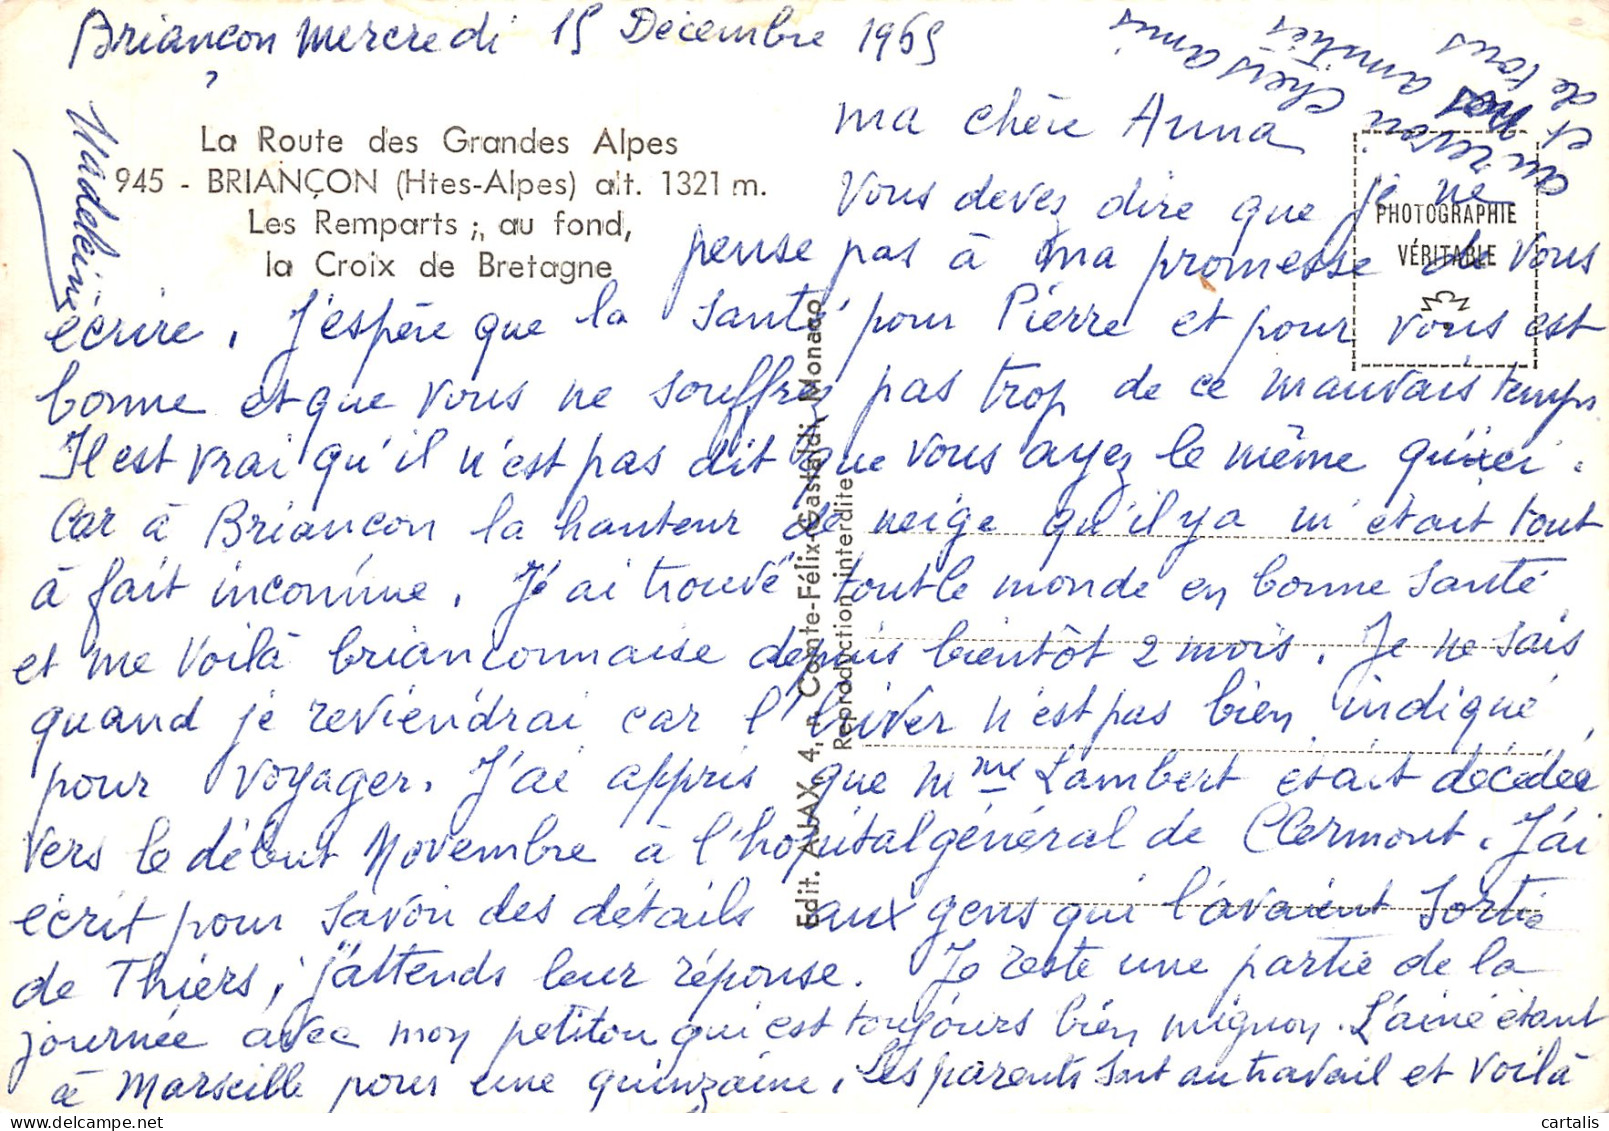 Briançon Mercredi 15 Décembre 1965
La Route des Grandes Alpes
945 - BRIANÇON (Htes-Alpes) alt. 1321 m.
Les Remparts ; au fond,
la Croix de Bretagne
PHOTOGRAPHIE
VÉRITABLE
Edit. AJAX, 4, r. Comte-Félix-Gastaldi, Monaco
Reproduction interdite
ma chère Anna
Vous devez dire que je ne
pense pas à ma promesse de vous
écrire. J'espère que la santé pour Pierre et pour vous est
bonne et que vous ne souffrez pas trop de ce mauvais temps
Il est vrai qu'il n'est pas dit que vous ayez le même qu'ici.
Car à Briançon la hauteur de neige qu'il y a m'était tout
à fait inconnue. J'ai trouvé tout le monde en bonne santé
et me voilà briançonnaise depuis bientôt 2 mois. Je ne sais
quand je reviendrai car l'hiver n'est pas bien indiqué
pour voyager. J'ai appris que Mme Lambert était décédée
vers le début Novembre à l'hopital général de Clermont. J'ai
écrit pour savoir des détails aux gens qui l'avaient sortie
de Thiers, j'attends leur réponse. Je reste une partie de la
journée avec mon petitou qui est toujours bien mignon. L'aîné étant
à Marseille pour une quinzaine. Les parents sont au travail et voilà
au revoir chers amis
et nos amitiés
de tous
Madeleine
cartalis